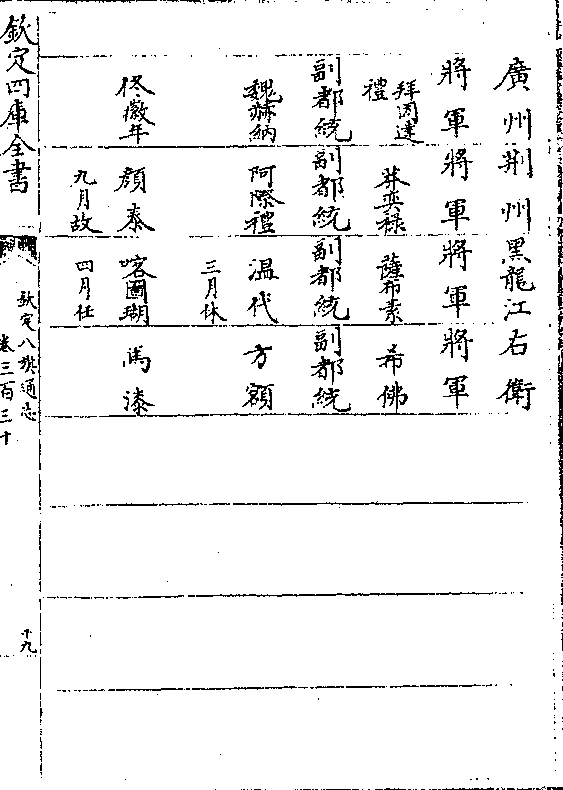 廣州荆州黑龍江右衛
將軍將軍將軍將軍
拜因達禮
莽奕禄
薩布素
希佛
副都統副都統副都統副都統
魏赫納
阿際禮
温代
方額
三月休
佟徽年
顔泰
喀圖瑚
馬漆
九月故
四月任
欽定四庫全書
欽定八旗通志
卷三百三十
十九